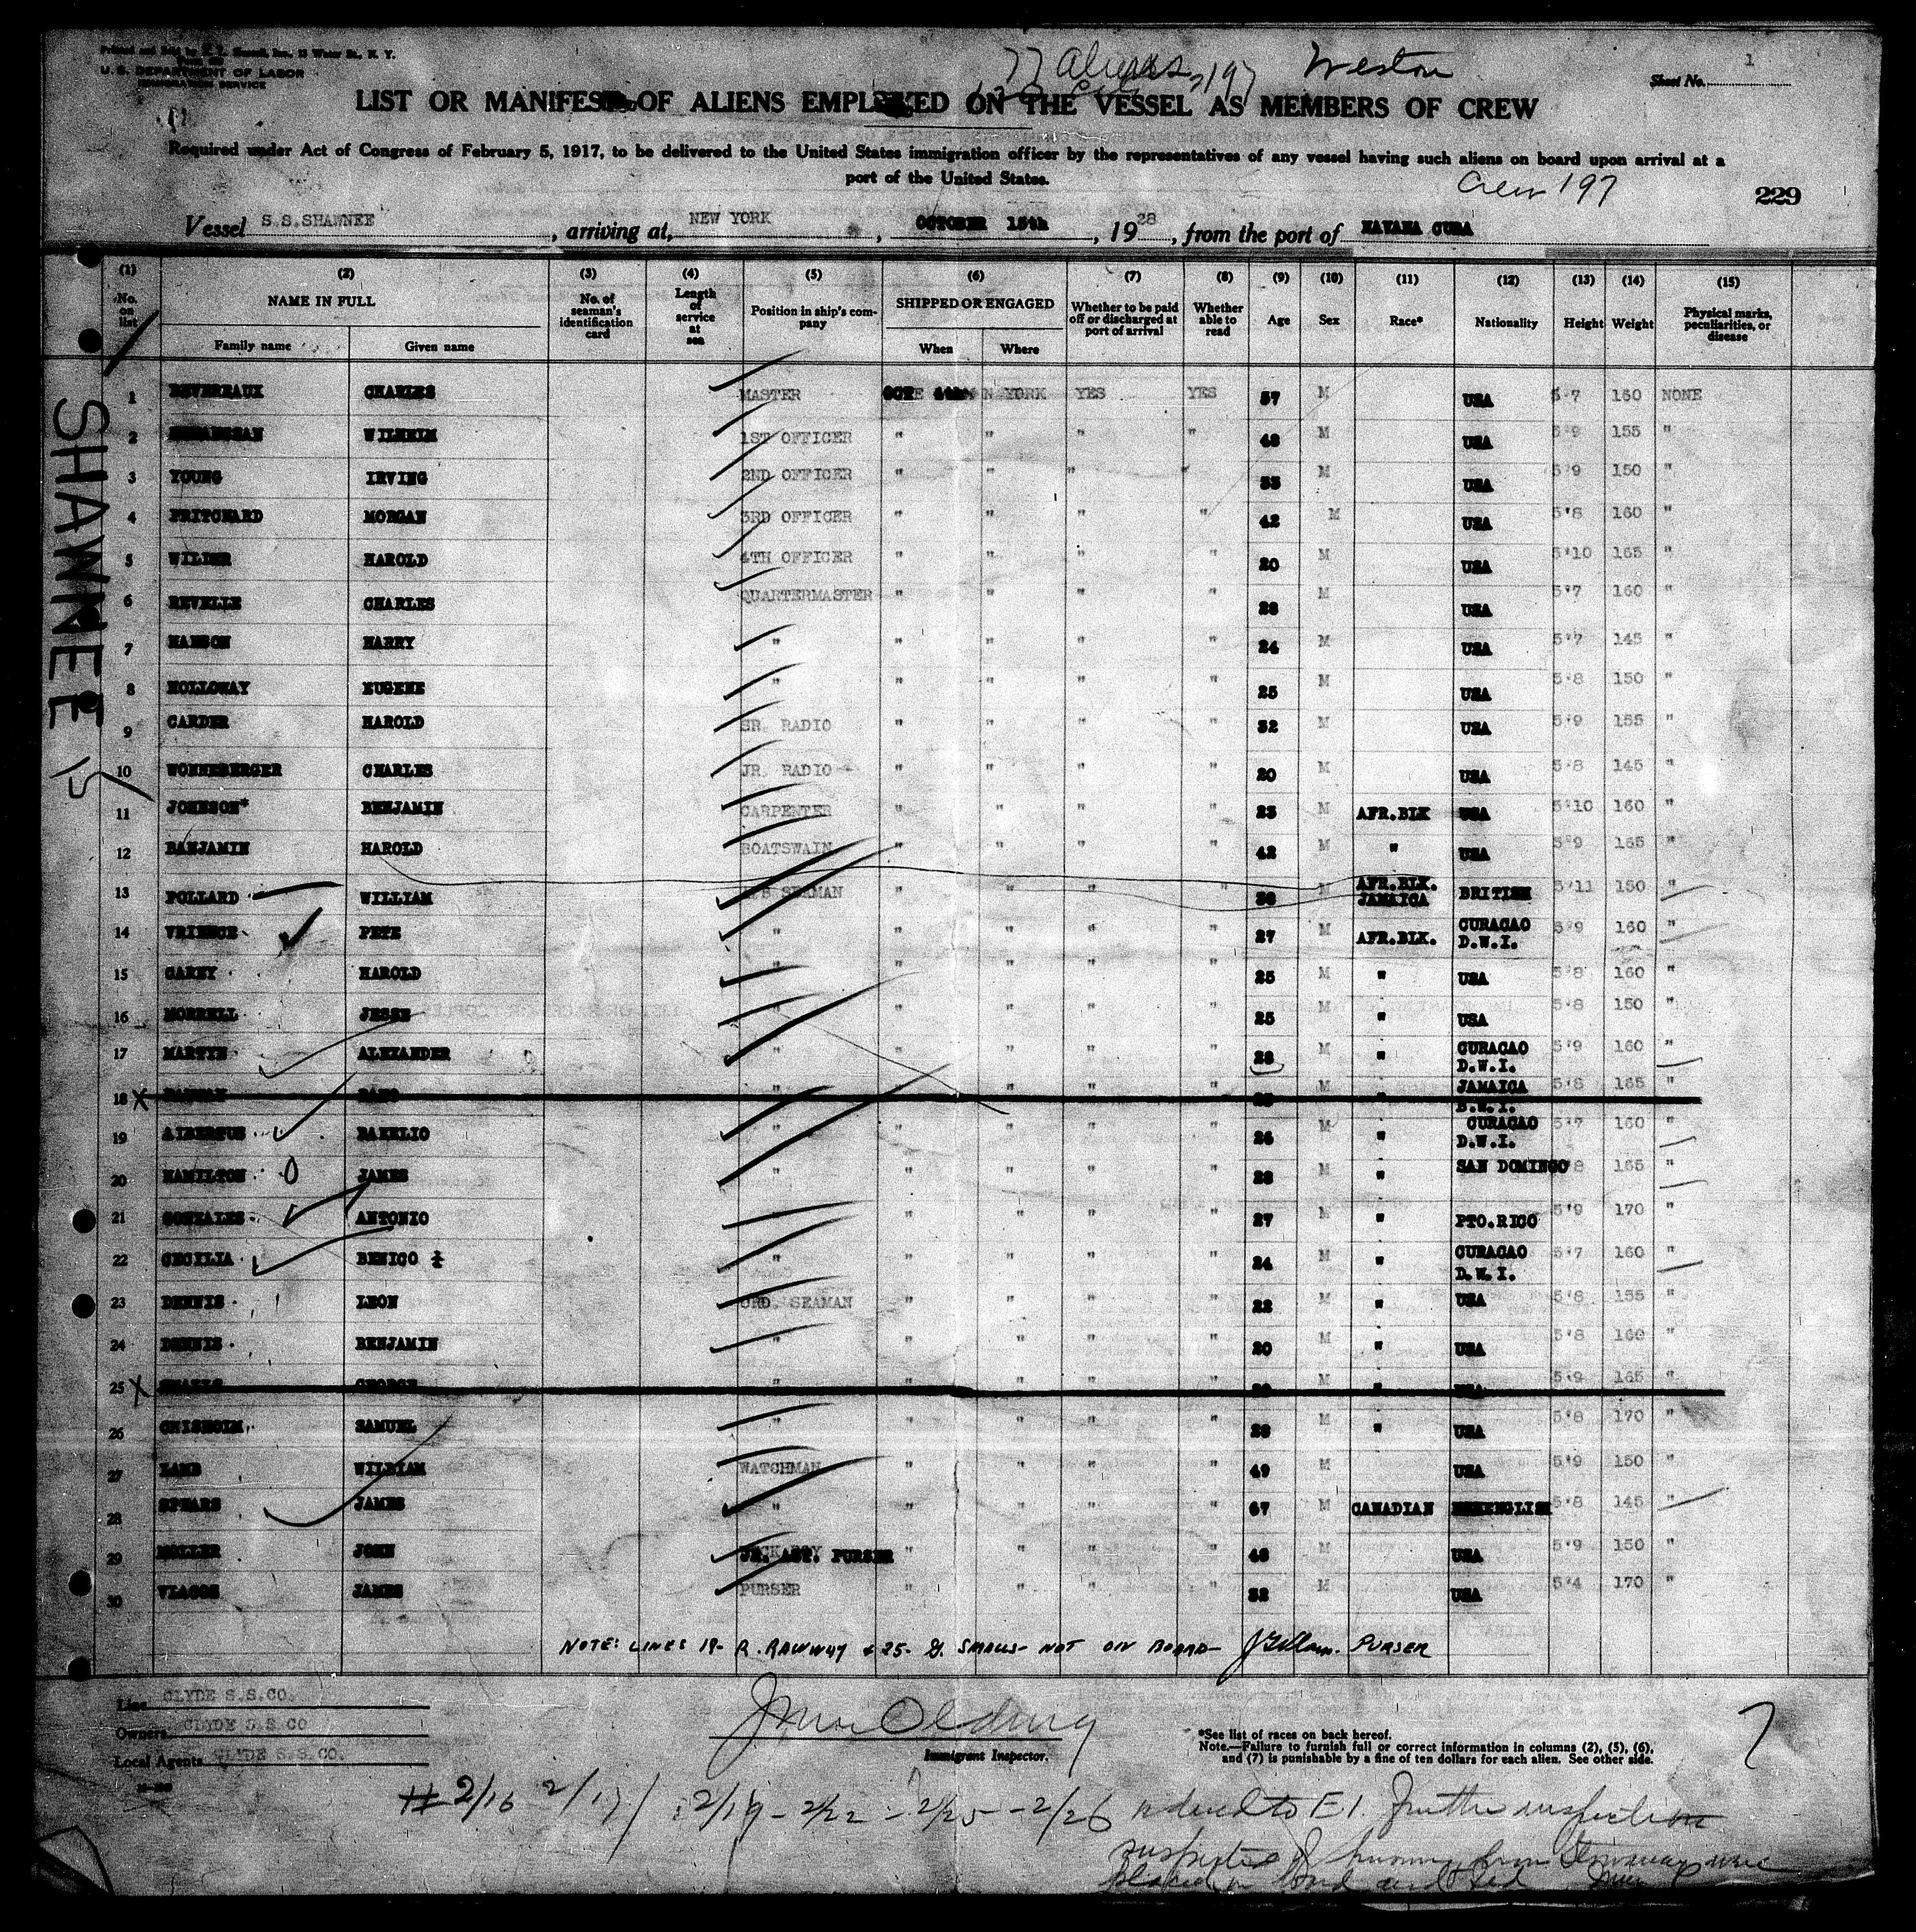 77 Aliens 197 Weston
Sheet No. 1
U. S. DEPARTMENT OF LABOR
IMMIGRATION SERVICE
LIST OR MANIFEST OF ALIENS EMPLOYED ON THE VESSEL AS MEMBERS OF CREW
Required under Act of Congress of February 5, 1917, to be delivered to the United States immigration officer by the representatives of any vessel having such aliens on board upon arrival at a
port of the United States.
Crew 197
229
Vessel S.S.SHAWNEE, arriving at, NEW YORK, OCTOBER 15th, 1928, from the port of HAVANA CUBA
SHAWNEE
(1) (2) (3) (4) (5) (6) (7) (8) (9) (10) (11) (12) (13) (14) (15)
No. on list NAME IN FULL Family name Given name No. of seaman's identification card Length of service at sea Position in ship's company SHIPPED OR ENGAGED When Where Whether to be paid off or discharged at port of arrival Whether able to read Age Sex Race* Nationality Height Weight Physical marks, peculiarities, or disease
1 DEVEREAUX CHARLES MASTER N YORK YES YES 57 M USA 5 7 160 NONE
2 WILHELM 1ST OFFICER " " " " 48 M USA 5 9 155 "
3 YOUNG IRVING 2ND OFFICER " " " " 33 M USA 5 9 150 "
4 PRITCHARD MORGAN 3RD OFFICER " " " " 42 M USA 5'8 160 "
5 WILDER HAROLD 4TH OFFICER " " " " 20 M USA 5'10 165 "
6 REVELLE CHARLES QUARTERMASTER " " " " 28 M USA 5'7 160 "
7 HANSON HARRY " " " " " 24 M USA 5'7 145 "
8 HOLLOWAY EUGENE " " " " " 25 M USA 5'8 150 "
9 CARDER HAROLD SR. RADIO " " " " 32 M USA 5'9 155 "
10 WONNEBERGER CHARLES JR. RADIO " " " " 20 M USA 5'8 145 "
11 JOHNSON* BENJAMIN CARPENTER " " " " 23 M AFR.BLK USA 5'10 160 "
12 BANJAMIN HAROLD BOATSWAIN " " " " 42 M " USA 5'9 165 "
13 POLLARD WILLIAM SEAMAN " " " " M AFR.BLK. JAMAICA BRITISH 5'11 "
14 VRIENCE PETE " " " " " 27 M AFR.BLK. CURACAO D.W.I. 5'9 160 "
15 CAREY HAROLD " " " " " 25 M " USA 5'8 160 "
16 MORRELL JESSE " " " " " 25 M " USA 5'8 150 "
17 MARTYN ALEXANDER " " " " " 28 M " CURACAO D.W.I. 5'9 160 "
18 X " " " " M " JAMAICA B.W.I. 5'8 165 "
19 ALBERTUS BAKELIO " " " " " 26 M " CURACAO D.W.I. 5'7 160 "
20 HAMILTON JAMES " " " " " 28 M " SAN DOMINGO 8 165 "
21 GONZALES ANTONIO " " " " " 27 M " PTO.RICO 5'9 170 "
22 CECILIA BENICO " " " " " 24 M " CURACAO D.W.I. 5'7 160 "
23 DENNIS LEON ORD. SEAMAN " " " " 22 M " USA 5'8 155 "
24 DENNIS BENJAMIN " " " " " 20 M " USA 5'8 160 "
25 X SMALLS GEORGE " " " " " M " USA 5'9 165 "
26 CHISHOLM SAMUEL " " " " " 28 M " USA 5'8 170 "
27 LAMB WILLIAM WATCHMAN " " " " 49 M USA 5'9 150 "
28 SPEARS JAMES " " " " " 67 M CANADIAN ENGLISH 5'8 145 "
29 JOHN JR. AST. PURSER " " " " 48 M USA 5'9 150 "
30 VLAGOS JAMES PURSER " " " " 32 M USA 5'4 170 "
NOTE: LINES 19- R. RAWWAY & 25- G. SMALLS- NOT ON BOARD- PURSER
Line CLYDE S.S.CO.
Owners CLYDE S.S.CO
Local Agents CLYDE S.S.CO.
Immigrant Inspector.
*See list of races on back hereof.
Note.—Failure to furnish full or correct information in columns (2), (5), (6),
and (7) is punishable by a fine of ten dollars for each alien. See other side.
# 2/16 2/17 / 2/19 - 2/22 - 2/25 - 2/26 to E I. further inspection
placed in bond and